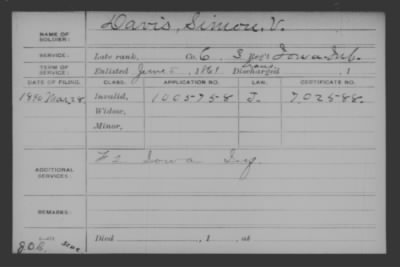 NAME OF SOLDIER: Davis, Simon. V.
SERVICE: Late rank, Co. C, 3 Reg't Iowa Inf.
TERM OF SERVICE: Enlisted June 5, 1861 Discharged , 1
DATE OF FILING. CLASS. APPLICATION NO. LAW. CERTIFICATE NO.
1890 Mar 28. Invalid, 1005758 J. 702588.
Widow,
Minor,
ADDITIONAL SERVICES: F 2 Iowa Inf
REMARKS:
Died , 1 , at